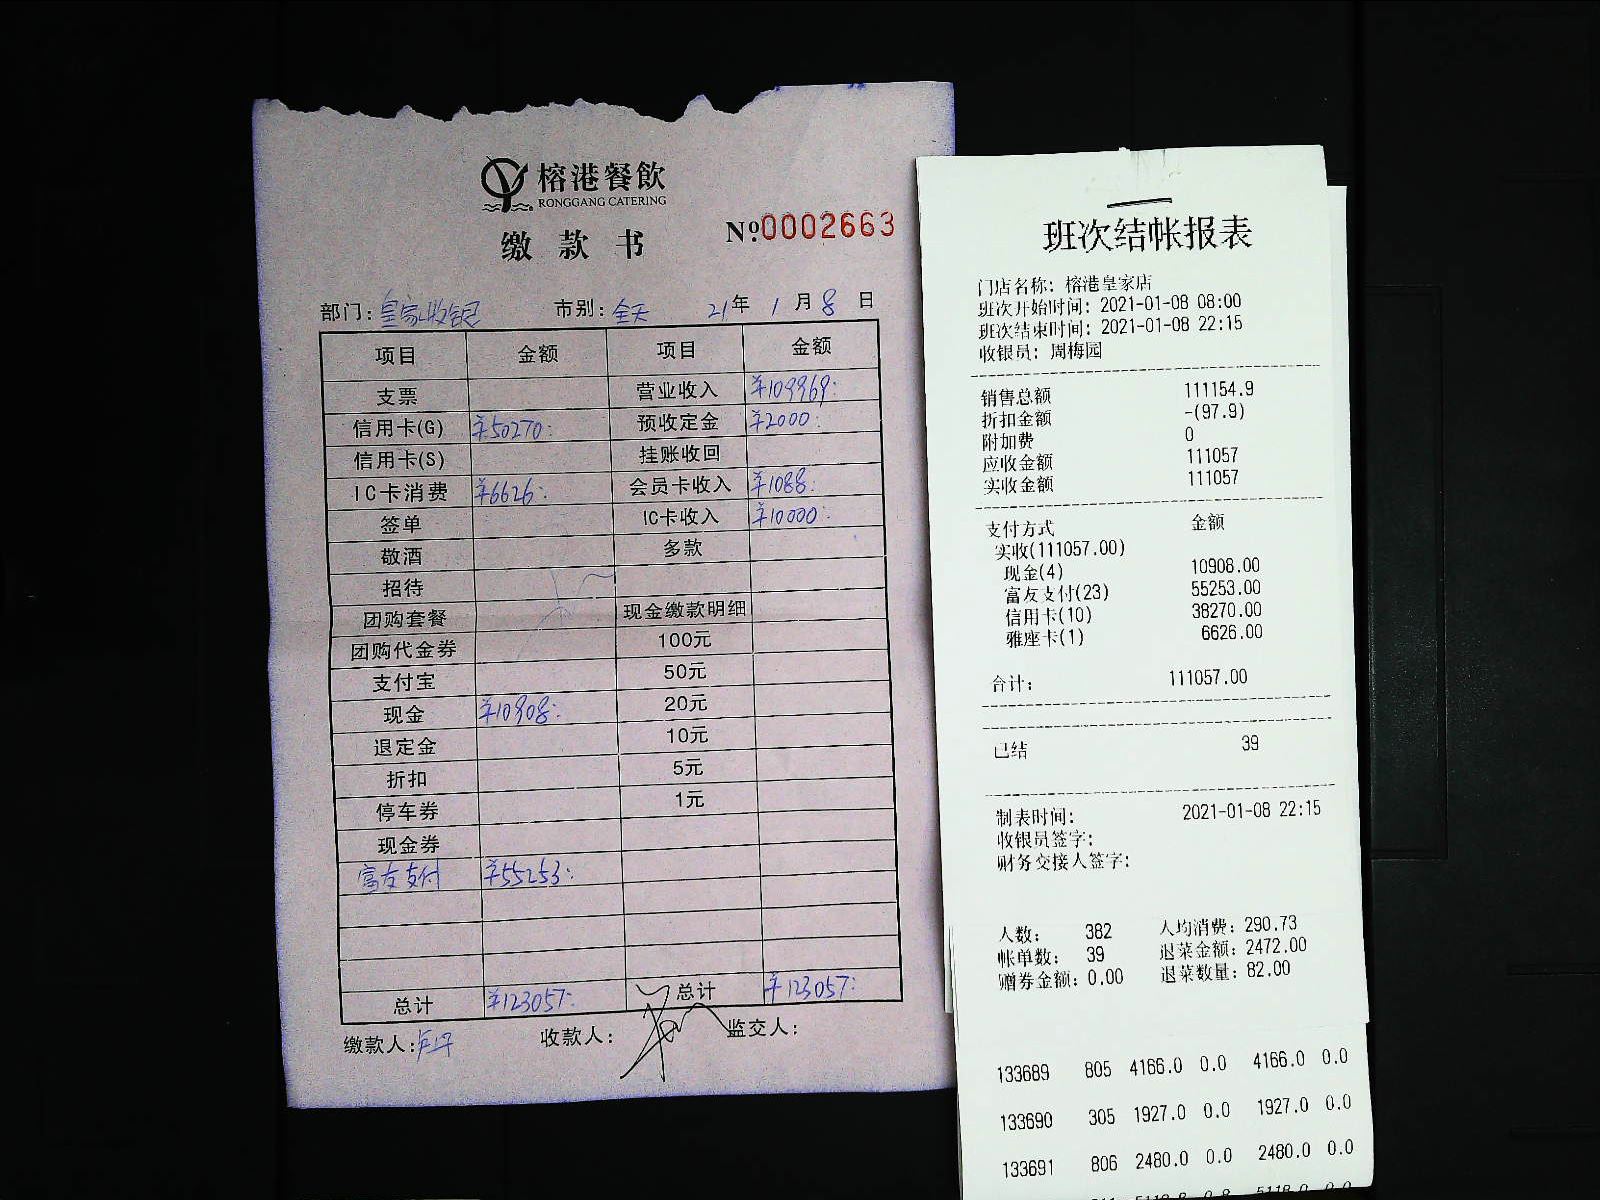 榕港餐飲
RONGGANG CATERING
缴款书
№0002663
部门:皇家收银 市别:全天 21年1月8日
项目 金额 项目 金额
支票 营业收入 ¥109969.
信用卡(G) ¥50270. 预收定金 ¥2000.
信用卡(S) 挂账收回
IC卡消费 ¥6626. 会员卡收入 ¥1088.
签单 IC卡收入 ¥10000.
敬酒 多款
招待
团购套餐 现金缴款明细
团购代金券 100元
支付宝 50元
现金 ¥10908. 20元
退定金 10元
折扣 5元
停车券 1元
现金券
富友支付 ¥55253.
总计 ¥123057. 总计 ¥123057.
缴款人: 收款人: 监交人:
班次结帐报表
门店名称: 榕港皇家店
班次开始时间: 2021-01-08 08:00
班次结束时间: 2021-01-08 22:15
收银员: 周梅园
销售总额 111154.9
折扣金额 -(97.9)
附加费 0
应收金额 111057
实收金额 111057
支付方式 金额
实收(111057.00)
现金(4) 10908.00
富友支付(23) 55253.00
信用卡(10) 38270.00
雅座卡(1) 6626.00
合计: 111057.00
已结 39
制表时间: 2021-01-08 22:15
收银员签字:
财务交接人签字:
人数: 382 人均消费: 290.73
帐单数: 39 退菜金额: 2472.00
赠券金额: 0.00 退菜数量: 82.00
133689 805 4166.0 0.0 4166.0 0.0
133690 305 1927.0 0.0 1927.0 0.0
133691 806 2480.0 0.0 2480.0 0.0